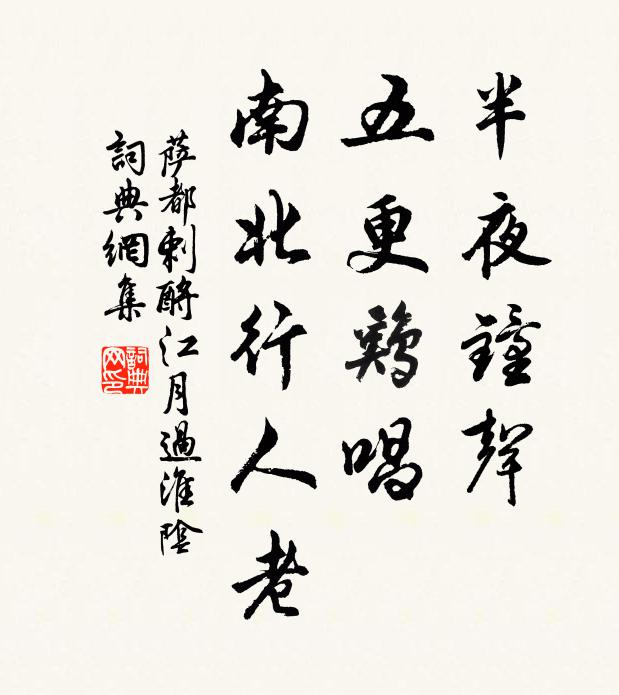 半夜鐘聲
五更鷄唱
南北行人老
薩都剌酹江月過淮陰
詞典網集
詞典网印